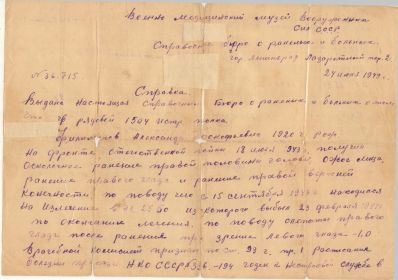 Военно Медицинский музей Вооруженных
Сил СССР
Справочное бюро о раненых и больных
гор Ленинград Лазаретный пер. 2
24 июня 1949 г.
№ 36715
Справка.
Выдана настоящая Справочным Бюро о раненых и больных о том,
что рядовой 1504 полка
Александр 1920 г. рожд
на фронте отечественной войны 18 июня 1943 получил
осколочное ранение правой половины головы, ожог лица,
ранение правого глаза и ранение правой верхней
конечности по поводу чего с 15 сентября находился
на излечении из которого выбыл 23 февраля
по окончании лечения, по поводу слепоты правого
глаза после ранения при зрении левого глаза -1.0
врачебной комиссией признан по ст. 93 г. пр. 1 расписания
болезни НКО СССР 336 -194 годен к нестроевой службе в